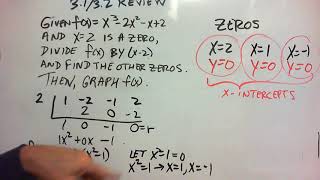 3.1/3.2 REVIEW
Given f(x)=x³-2x²-x+2
AND x=2 IS A ZERO,
DIVIDE f(x) BY (x-2)
AND FIND THE OTHER ZEROS.
THEN, GRAPH f(x).
2 | 1 -2 -1 2
2 0 -2
1 0 -1 0=r
1x²+0x-1
x²-1)
LET x²-1=0
x²=1→x=1,x=-1
ZEROS
x=2 x=1 x=-1
y=0 y=0 y=0
x-INTERCEPTS